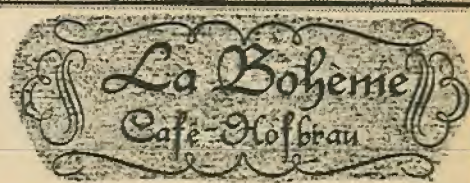 La Bohème
Café Hofbrau